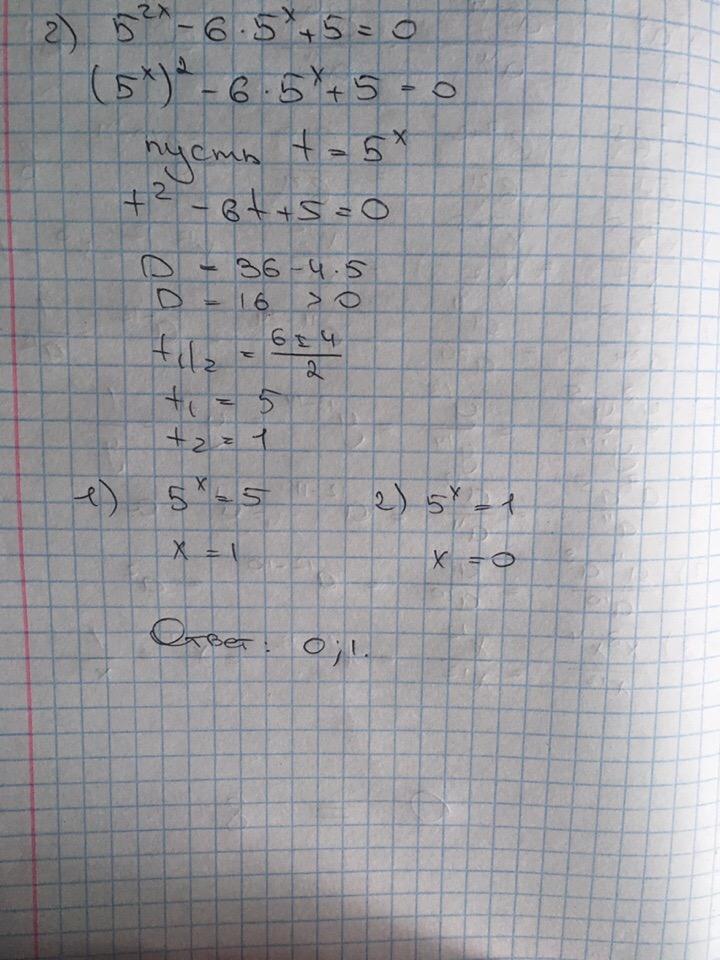 г) 5^{2x} - 6 · 5^x + 5 = 0
(5^x)^2 - 6 · 5^x + 5 = 0
пусть t = 5^x
t^2 - 6t + 5 = 0
D = 36 - 4 · 5
D = 16 > 0
t_{1/2} = \frac{6 ± 4}{2}
t_1 = 5
t_2 = 1
1) 5^x = 5 2) 5^x = 1
x = 1 x = 0
Ответ: 0; 1.